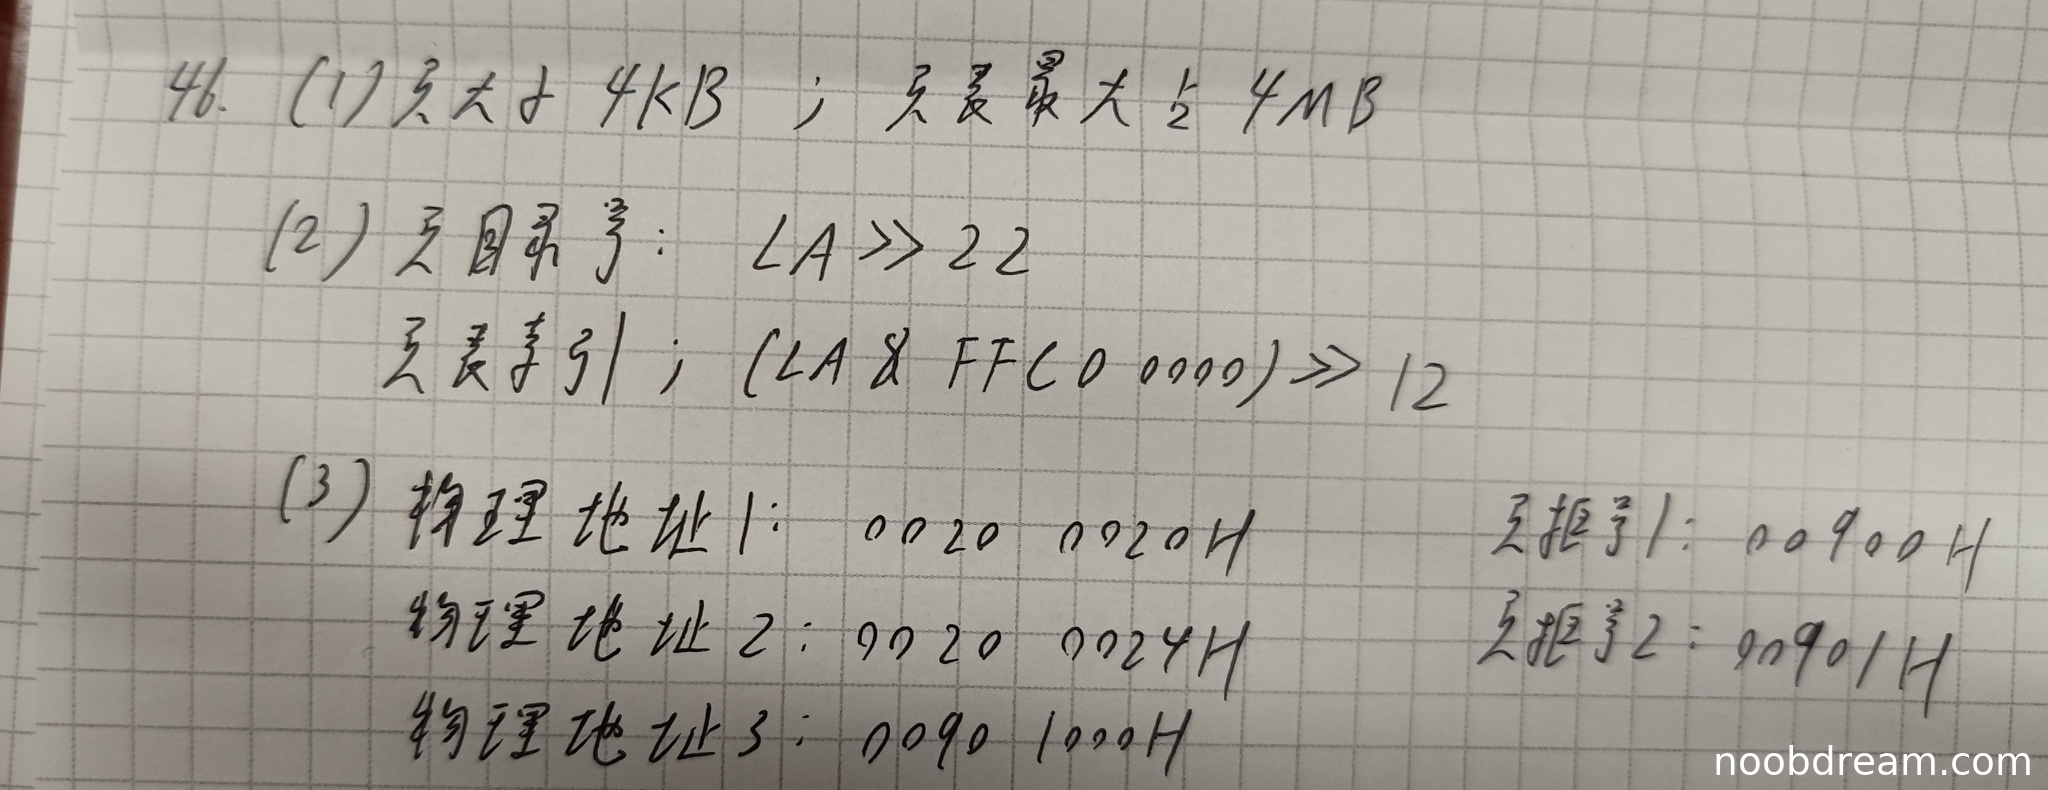 46. (1) 页大小 4KB ; 页表最大占 4MB
(2) 页目录号: LA >> 22
页表索引 ; (LA & FFC0 0000) >> 12
(3) 物理地址1: 0020 0020H 页框号1: 00900H
物理地址2: 0020 0024H 页框号2: 00901H
物理地址3: 0090 1000H
noobdream.com